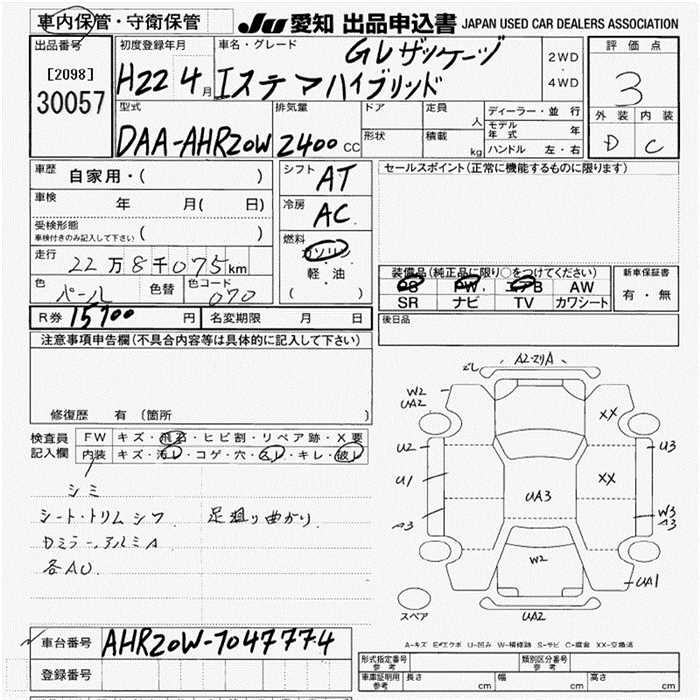 車内保管・守衛保管
JU 愛知 出品申込書 JAPAN USED CAR DEALERS ASSOCIATION
出品番号
[2098]
30057
初度登録年月
H22 4 月
車名・グレード
GLザッケージ
エステマハイブリッド
2WD
・
4WD
評価点
3
外装 内装
D C
型式
DAA-AHR20W
排気量
2400 cc
ドア
形状
定員 人
積載 kg
ディーラー・並行
モデル年式 年
ハンドル 左・右
車歴 自家用・( )
車検 年 月( 日)
受検形態
車検付きのみ記入して下さい ( )
走行 22万8千075km
色 パール 色替 色コード 070
シフト AT
冷房 AC
燃料 ガソリン
軽・油
( )
セールスポイント(正常に機能するものに限ります)
装備品(純正品に限り○をつけてください)
PS PW エアB AW
SR ナビ TV カワシート
新車保証書
有・無
R券 15700 円 名変期限 月 日
後日品
注意事項申告欄(不具合内容等は具体的に記入して下さい)
修復歴 有 (箇所 )
検査員
記入欄
FW キズ・飛石・ヒビ割・リペア跡・X要
内装 キズ・汚レ・コゲ・穴・スレ・キレ・破レ
シミ
シート・トリムシワ 足廻り曲がり
Dミラー、アルミA
各AU.
A2・ズリA
W2
UA2
XX
U2
U3
U1
XX
UA3
A3
W3
A3
W2
UA1
UA2
スペア
A-キズ E-エクボ U-凹み W-補修跡 S-サビ C-腐食 XX-交換済
車台番号 AHR20W-7047774
登録番号
形式指定番号
参考
類別区分番号
参考
車庫証明用
参考
長さ cm 幅 cm 高さ cm